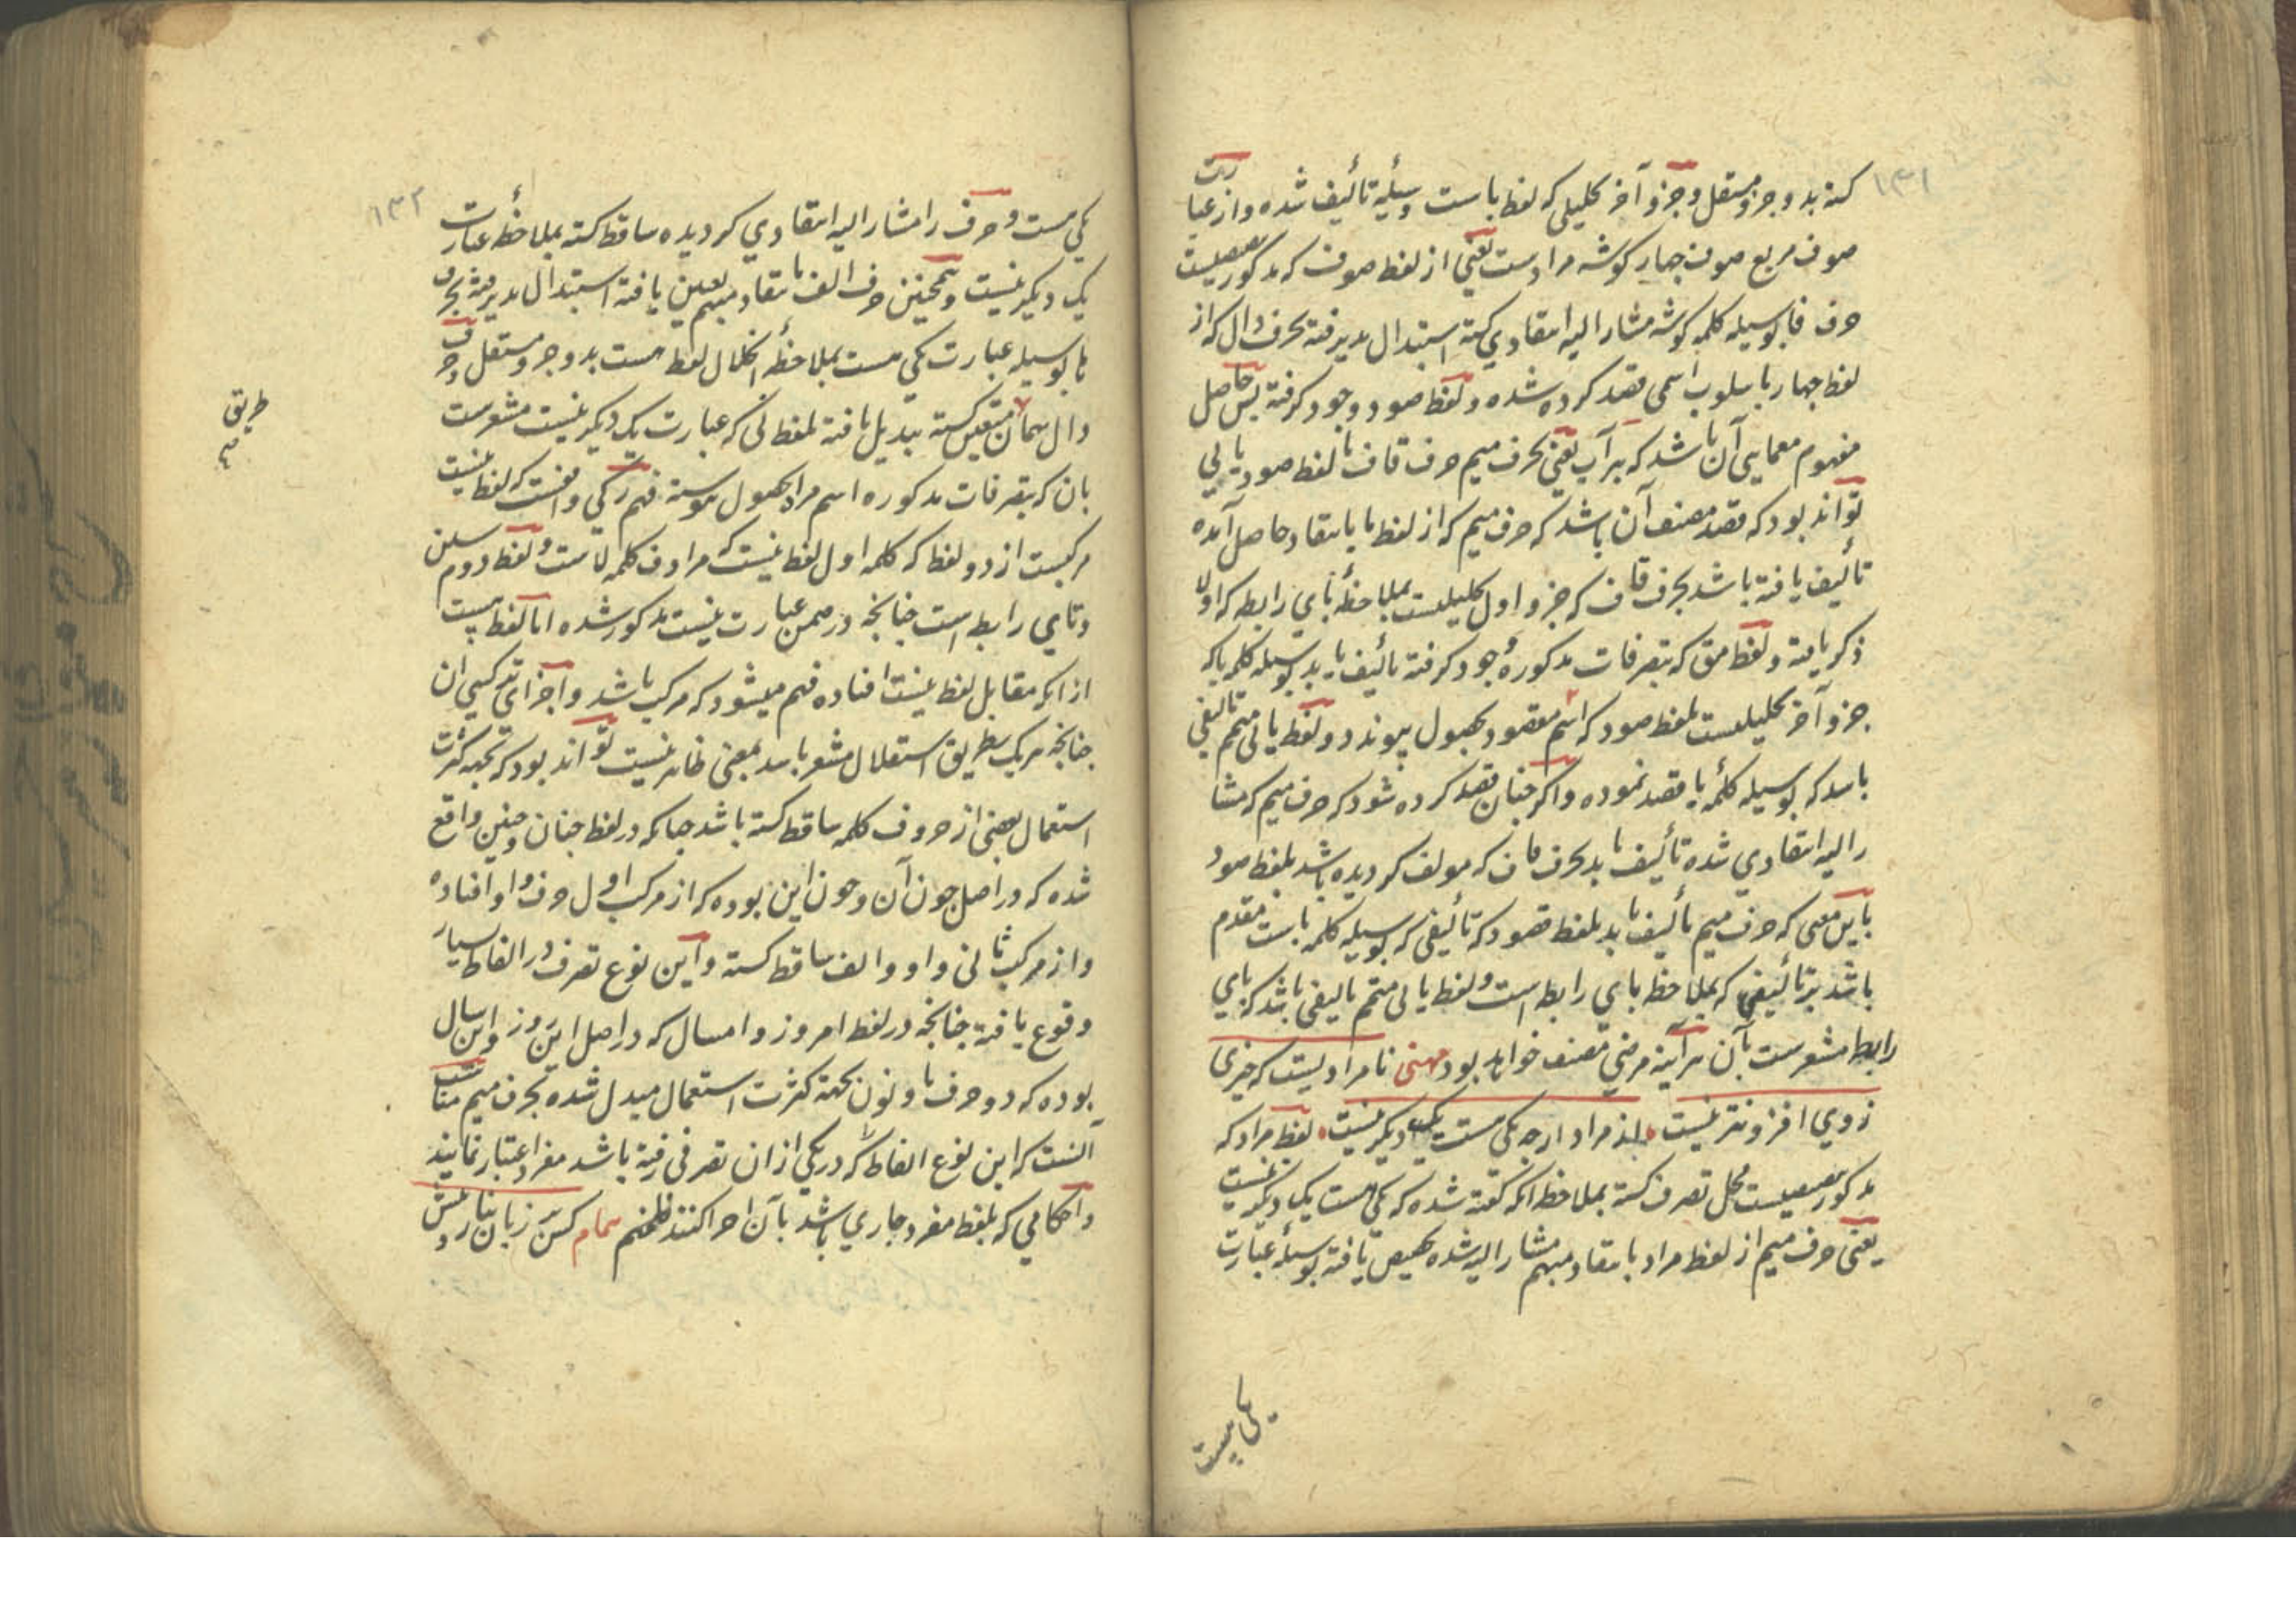 ۱۳۱
کشته بدو جزو مستقل و جزو آخر تحلیلی که لفظ باست وسیلهٔ تألیف شده و از عبارت
صوف مربع صوف چهار کوشه مرادست یعنی از لفظ صوف که مذکور
حرف فا بوسیله کلمه کوشه مشار الیه انتقادی کشته استبدال پذیرفته بحرف دال که از
لفظ چهار باسلوب اسمی قصد کرده شده و لفظ صود وجود کرفته پس حاصل
مفهوم معمایی آن باشد که بر آب یعنی بحرف میم حرف قاف با لفظ صود یابی
تواند بود که قصد مصنف آن باشد که حرف میم که از لفظ ما بانتقاد حاصل آمده
تألیف یافته باشد بحرف قاف که جزو اول تحلیلیست بملاحظهٔ بای رابطه که اولا
ذکر یافته و لفظ مق که بتصرفات مذکوره وجود کرفته تألیف یابد بوسیله کلمه با که
جزو آخر تحلیلیست بلفظ صود که اسم مقصود بحصول پیوندد و لفظ یابی متمم تألیفی
باشد که بوسیله کلمهٔ با قصد نموده و اکر چنان قصد کرده شود که حرف میم که مشا
را الیه انتقادی شده تألیف یابد بحرف قاف که مولف کردیده باشد بلفظ صود
باین معنی که حرف میم تألیف یابد بلفظ قصود که تألیفی که بوسیله کلمه باست مقدم
باشد بر تألیفی که بملاحظه بای رابطه است و لفظ یابی متمم تألیفی باشد که بای
رابطه مشعرست بآن هر آینه مرضی مصنف خواهد بود مهنی نامرادیست که چیزی
زوی افزونتر نیست لذ مراد ارچه یکی هست یک دیکر نیست لفظ مراد که
مذکور محل تصرف کشته بملاحظه آنکه کفته شده که یکی هست یک دیکر نیست
یعنی حرف میم از لفظ مراد بانتقاد مبهم مشار الیه شده تخصیص یافته بوسیلهٔ عبارت
یکی هست
۱۳۲
یکی هست و حرف را مشار الیه انتقادی کردیده ساقط کشته بملاحظهٔ عبارت
یک دیکر نیست و همچنین حرف الف بانتقاد مبهم تعین یافته استبدال پذیرفته بجزو
با بوسیله عبارت یکی هست بملاحظهٔ انحلال لفظ هست بدو جزو مستقل و حرف
دال همان متعین کشته تبدیل یافته بلفظ نی که عبارت یک دیکر نیست مشعرست
بان که بتصرفات مذکوره اسم مراد بحصول پیوسته فهم زکی واقفست که لفظ نیست
مرکبست از دو لفظ که کلمه اول لفظ نیست که مرادف کلمه لاست و لفظ دوم سین
و تای رابط است چنانچه در ضمن عبارت نیست مذکور شده اما لفظ هست
از آنکه مقابل لفظ نیست افتاده فهم میشود که مرکب باشد و اجزای ترکیبی ان
چنانچه هر یک بطریق استقلال مشعر باشد بمعنی ظاهر نیست تواند بود که بجهة کثرت
استعمال بعضی از حروف کلمه ساقط کشته باشد چنانکه در لفظ چنان و چنین واقع
شده که در اصل چون آن و چون این بوده که از مرکب اول حرف واو افتاده
و از مرکب ثانی واو و الف ساقط کشته و این نوع تصرف در الفاظ بسیار
وقوع یافته چنانچه در لفظ امروز و امسال که در اصل این روز و این سال
بوده که دو حرف یا و نون بجهة کثرت استعمال مبدل شده بحرف میم مناسب
آنست که این نوع الفاظ که در یکی از ان تصرفی رفته باشد مفرد اعتبار نمایند
و احکامی که بلفظ مفرد جاری باشد بآن اجرا کنند فلیفهم سمام کس زبان
طریق